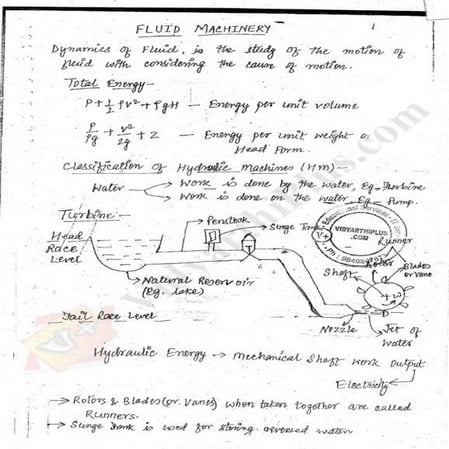 FLUID MACHINERY
Dynamics of Fluid, is the study of the motion of
fluid with considering the cause of motion.
Total Energy-
P + 1/2 ρv² + ρgH — Energy per unit volume
P/ρg + v²/2g + z — Energy per unit weight o
Head Form.
Classification of Hydraulic Machines (Hm)-
Water → Work is done by the water, Eg. Turbine
→ Work is done on the water Eg- Pump.
Turbine-
Head
Race
Level
Penstock
Surge Tank
VIDYARTHPLUS
.COM
Runner
Rotor
Blades
or Vane
Shaft
+ω
Natural Reservoir
(Eg. lake)
Tail Race Level
Nozzle
Jet of
Water
Hydraulic Energy → Mechanical Shaft Work Output
Electricity
→ Rotors & Blades (or. Vanes) when taken together are called
Runners.
→ Surge Tank is used for storing reversed water